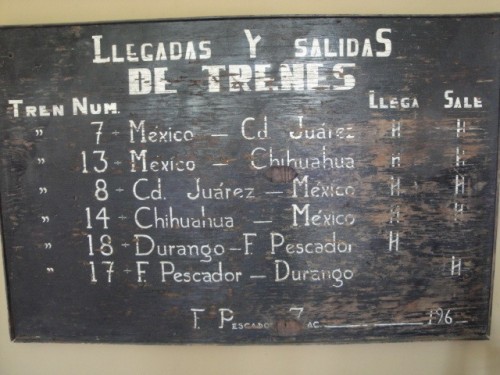 LLEGADAS Y SALIDAS
DE TRENES
TREN NUM. LLEGA SALE
" 7 - México — Cd Juárez H H
" 13 - México — Chihuahua H H
" 8 - Cd. Juárez — México H H
" 14 - Chihuahua — México H H
" 18 - Durango — F. Pescador H
" 17 - F. Pescador — Durango H
F. PESCADOR ZAC. 196